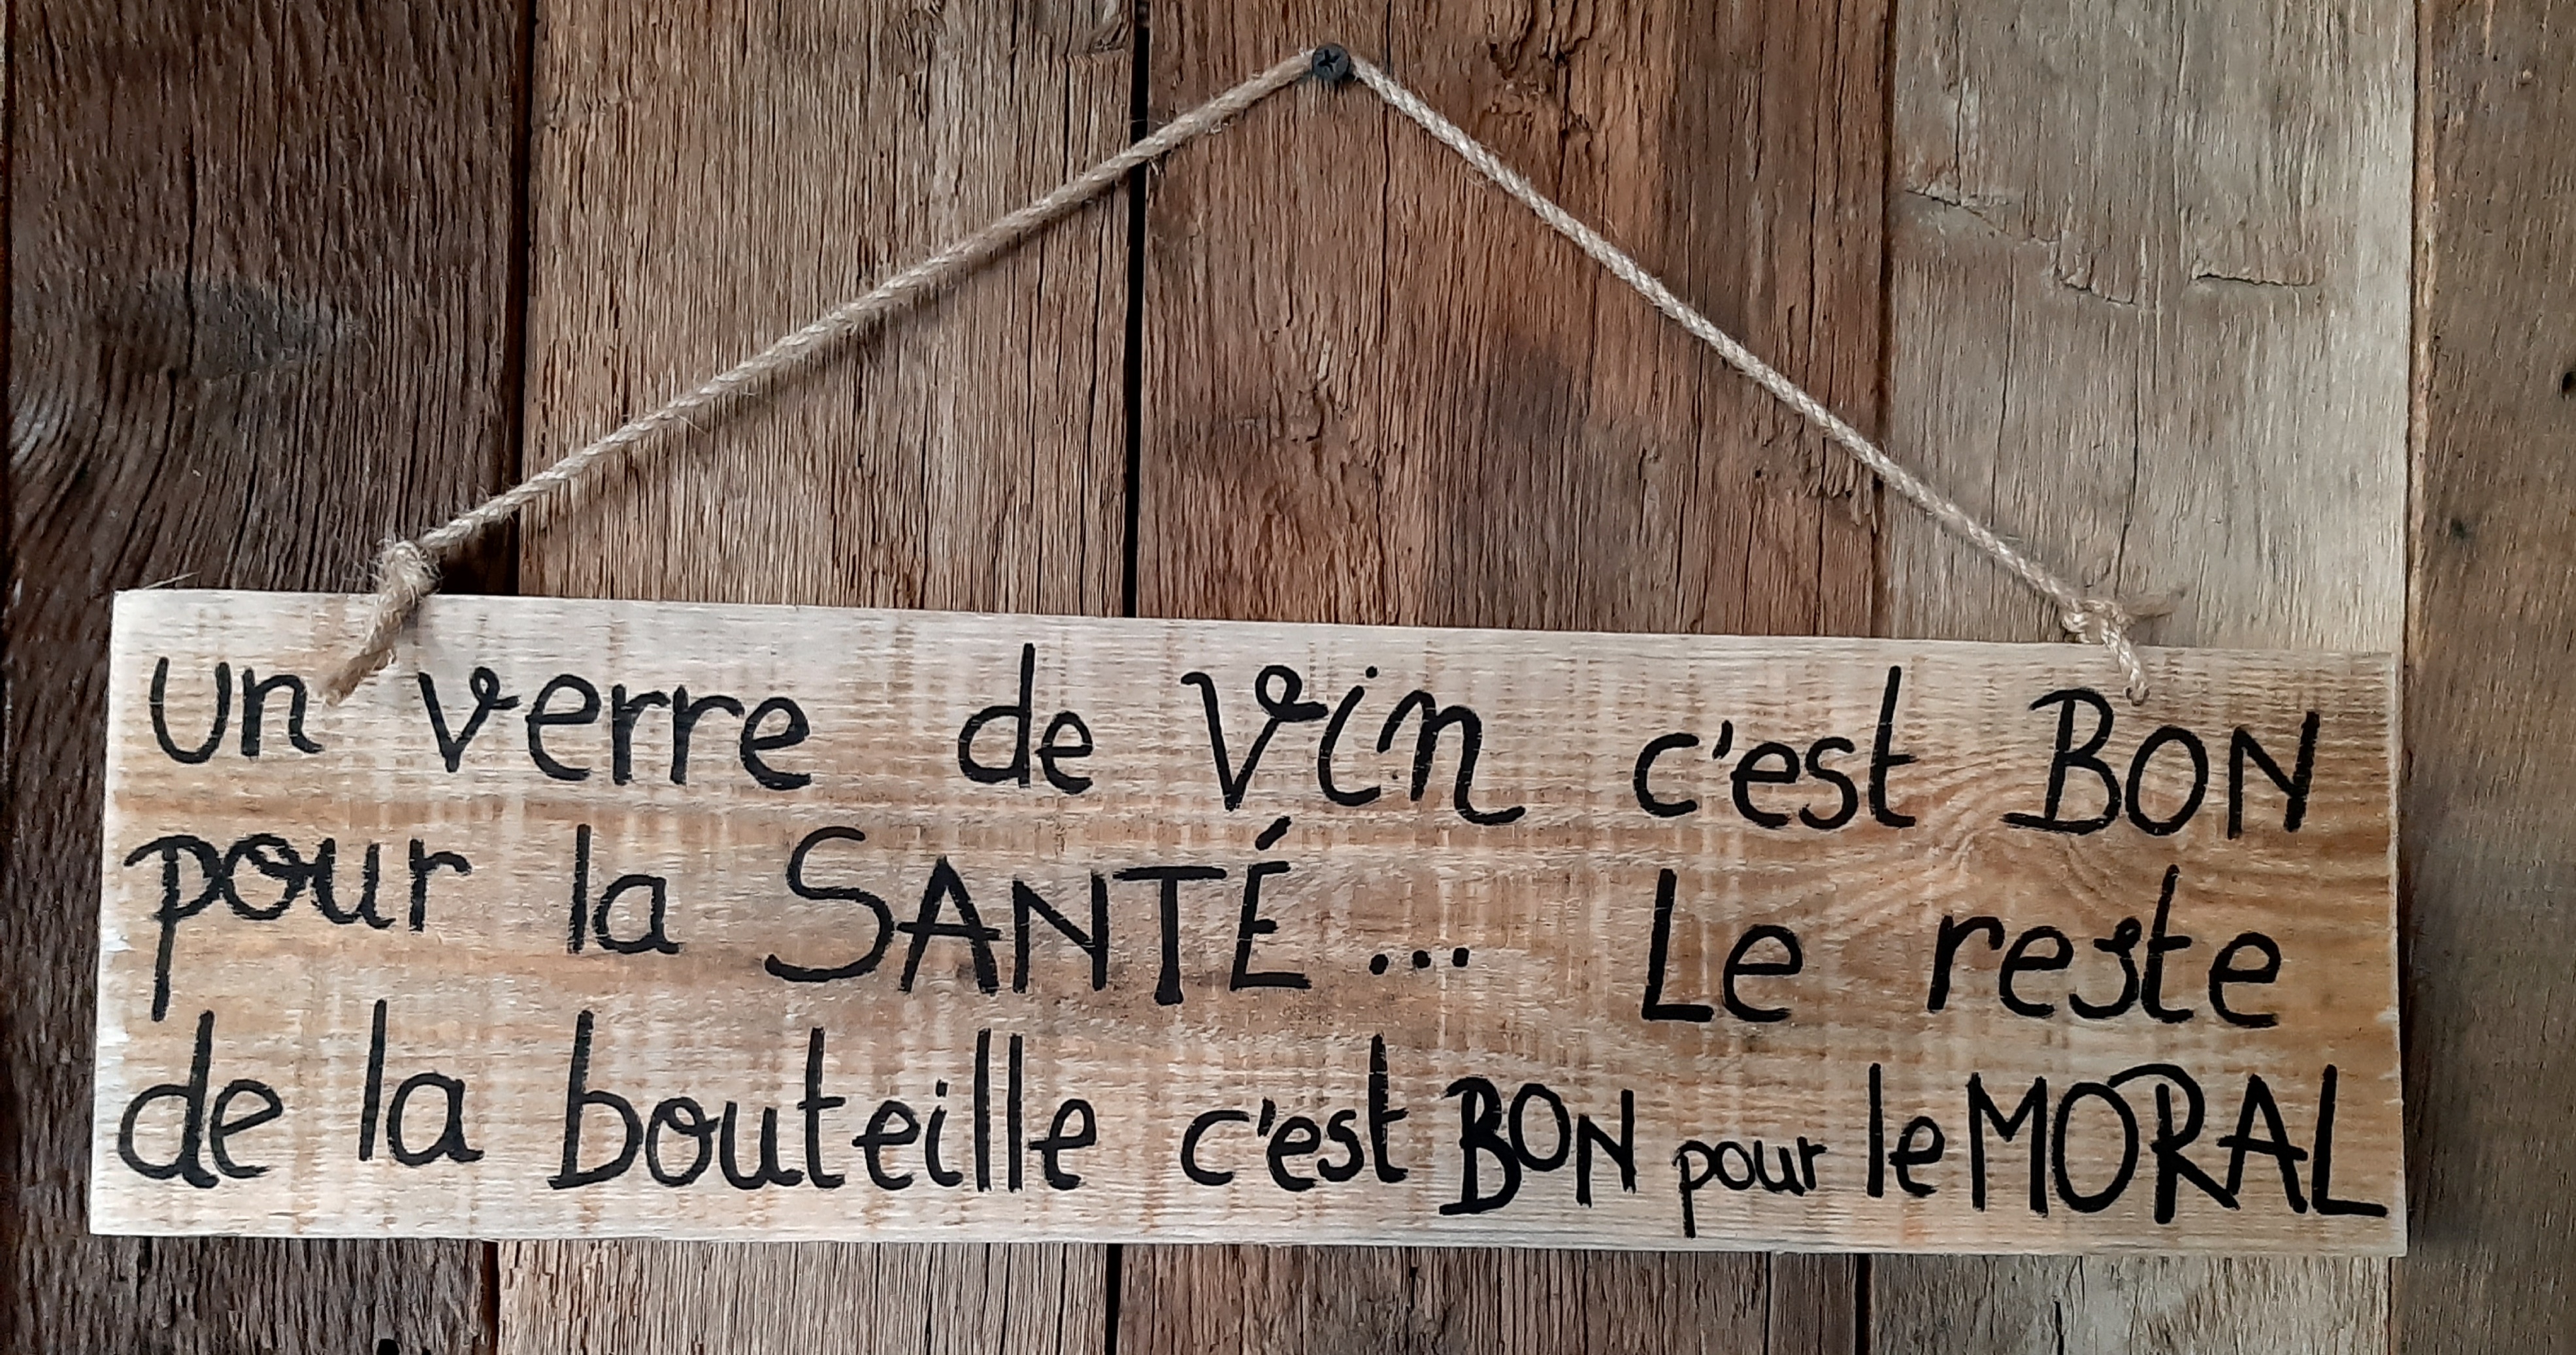 un verre de Vin c'est BON
pour la SANTÉ... Le reste
de la bouteille c'est BON pour le MORAL